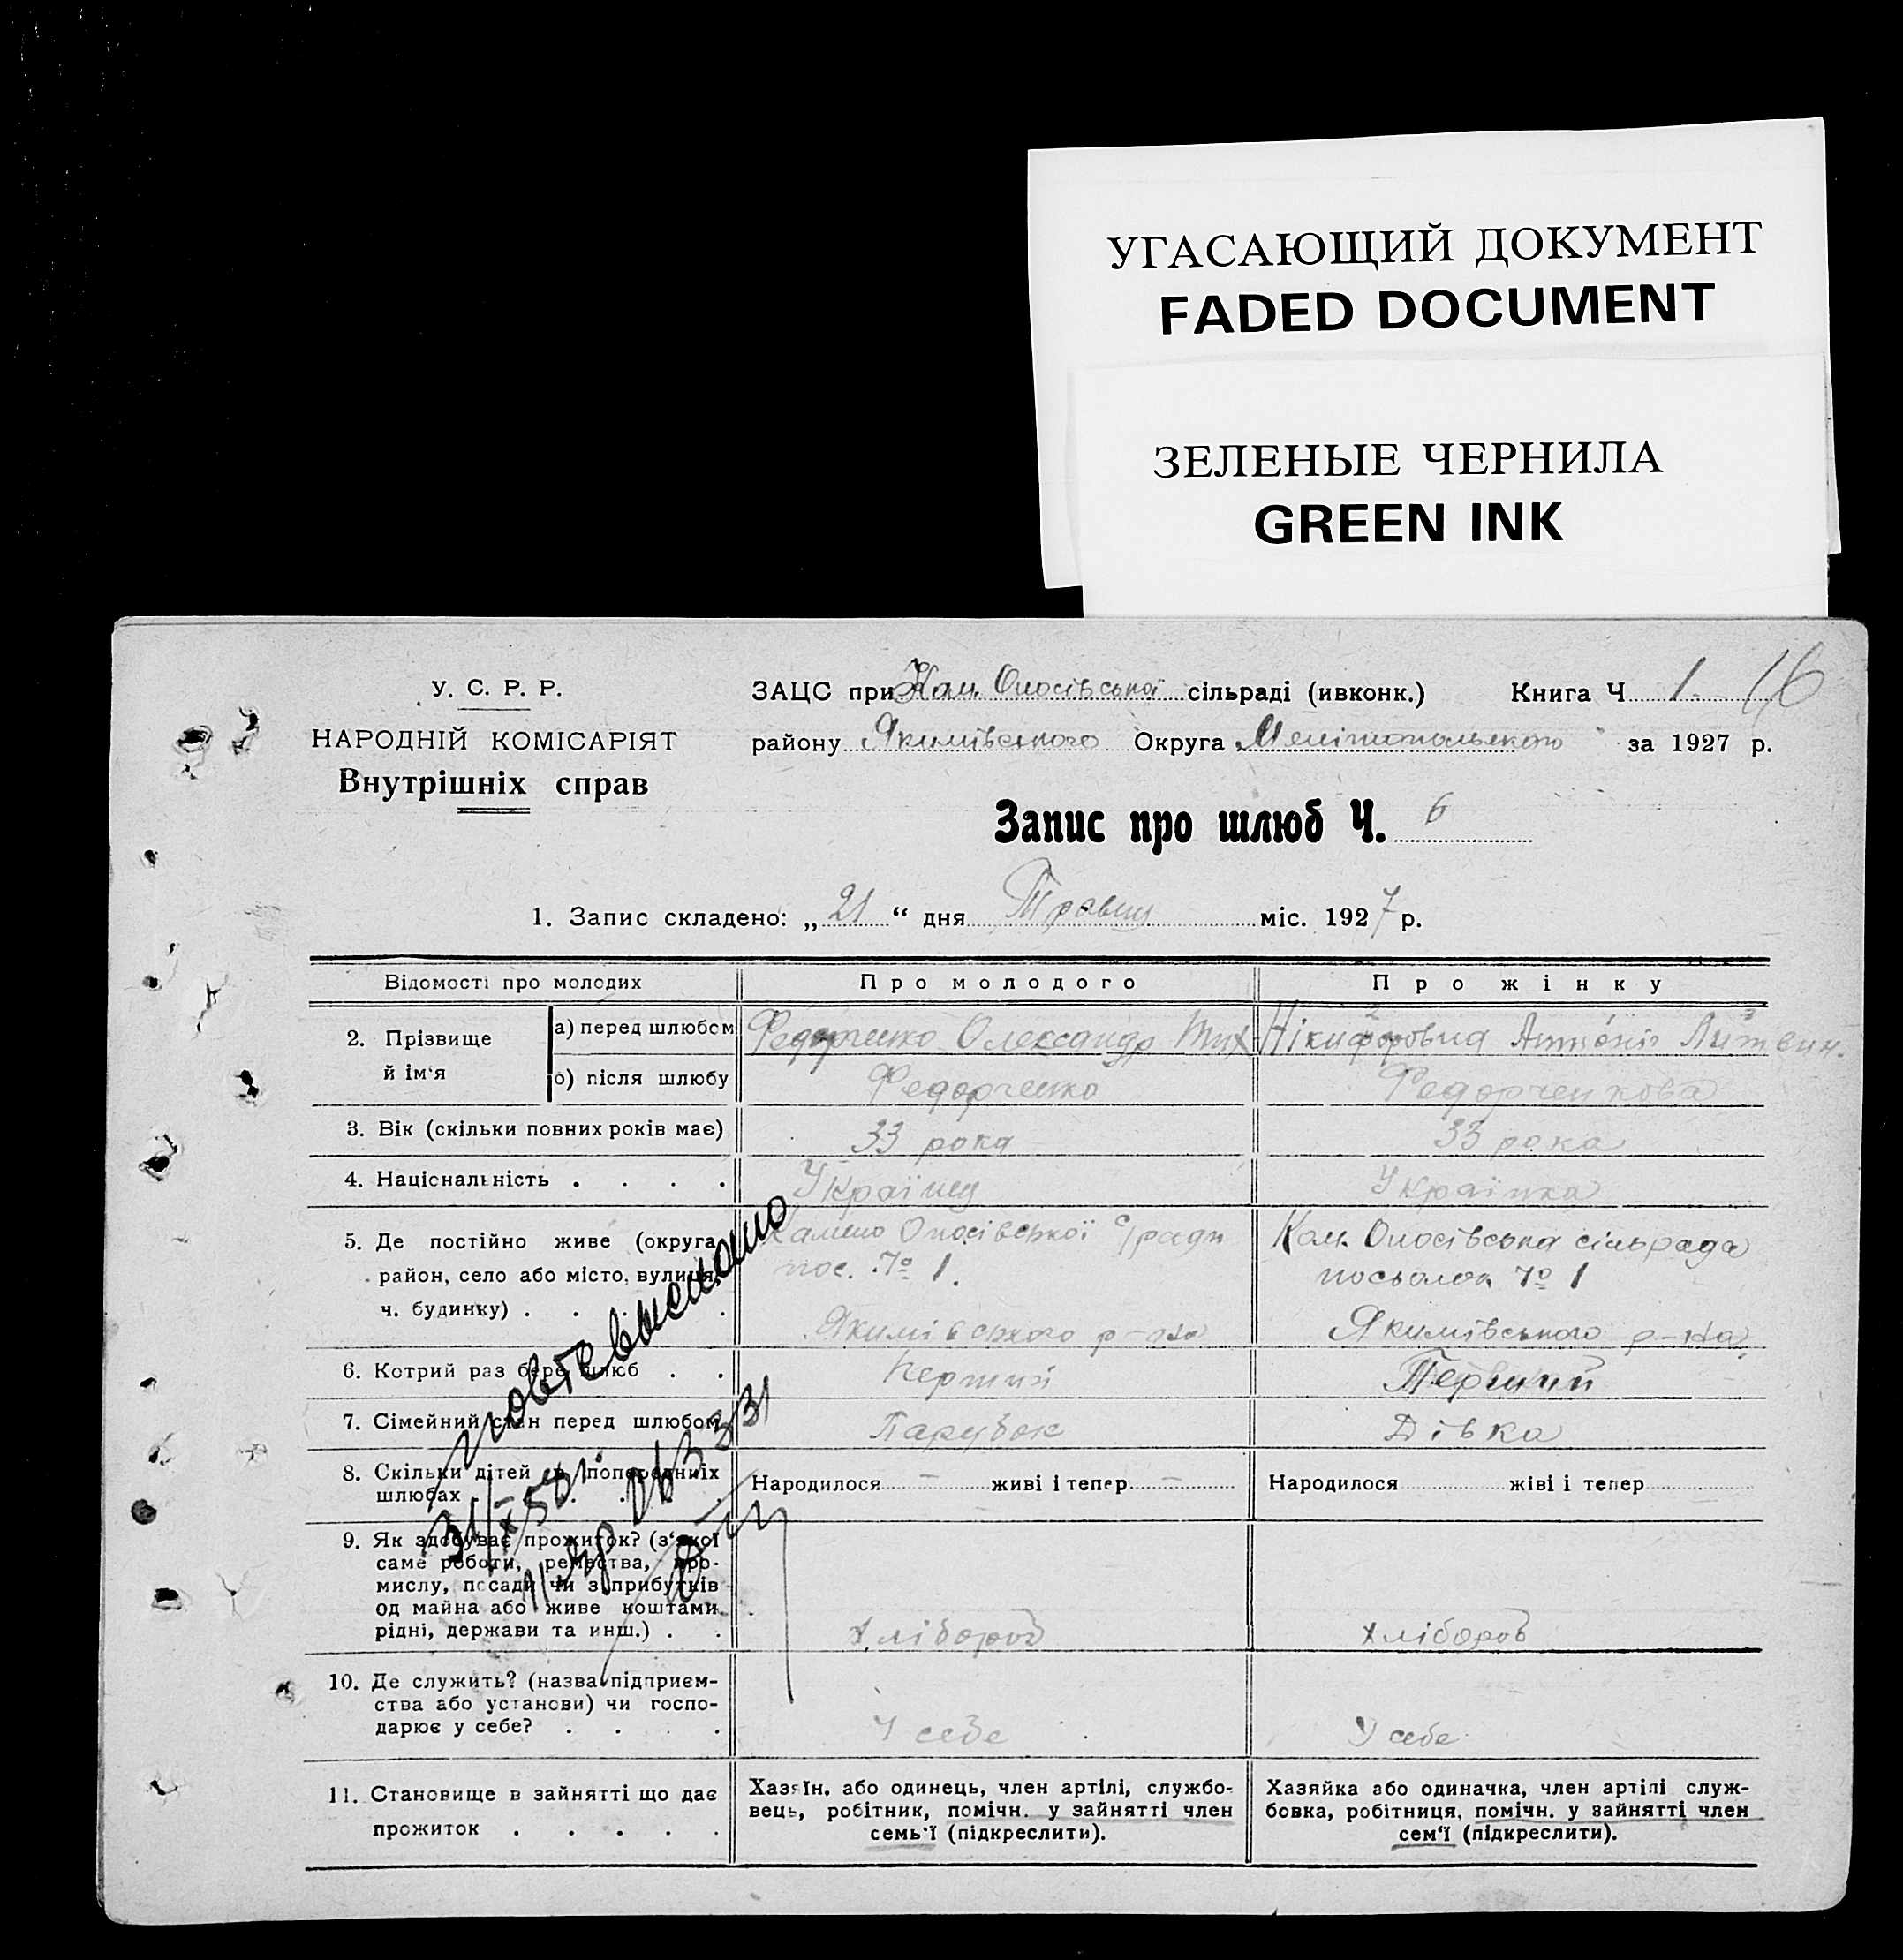 УГАСАЮЩИЙ ДОКУМЕНТ
FADED DOCUMENT
ЗЕЛЕНЫЕ ЧЕРНИЛА
GREEN INK
У. С. Р. Р.
НАРОДНІЙ КОМІСАРІЯТ
Внутрішніх справ
ЗАЦС при Кам. сільраді (ивконк.) Книга Ч 1 16
району Якимівського Округа Мелітопольського за 1927 р.
Запис про шлюб Ч. 6
1. Запис складено: „ 21 “ дня Травня міс. 1927 р.
Відомості про молодих Про молодого Про жінку
2. Прізвище й ім‘я
а) перед шлюбом Федорченко Олександр Тих Нікифоровна Литвин.
о) після шлюбу Федорченко Федорченкова
3. Вік (скільки повних років має) 33 рока 33 рока
4. Національність . . . . Українец Українка
5. Де постійно живе (округа,
район, село або місто, вулиця,
ч. будинку) . . . .
с/ради
пос. № 1.
Якимівського р-на
Кам. сільрада
посьолок № 1
Якимівського р-на
6. Котрий раз бере шлюб . . Первий Первий
7. Сімейний стан перед шлюбом Парубок Дівка
8. Скільки дітей в попередніх
шлюбах . . . . .
Народилося – живі і тепер – Народилося живі і тепер
9. Як здобуває прожиток? (з‘якої
саме роботи, ремества, про-
мислу, посади чи з прибутків
од майна або живе коштами
рідні, держави та инш.) . .
Хлібороб Хлібороб
10. Де служить? (назва підприєм-
ства або установи) чи госпо-
дарює у себе? . . . .
У себе У себе
11. Становище в зайнятті що дає
прожиток . . . . .
Хазяїн, або одинець, член артілі, службо-
вець, робітник, помічн. у зайнятті член
семь‘ї (підкреслити).
Хазяйка або одиначка, член артілі служ-
бовка, робітниця, помічн. у зайнятті член
сем‘ї (підкреслити).